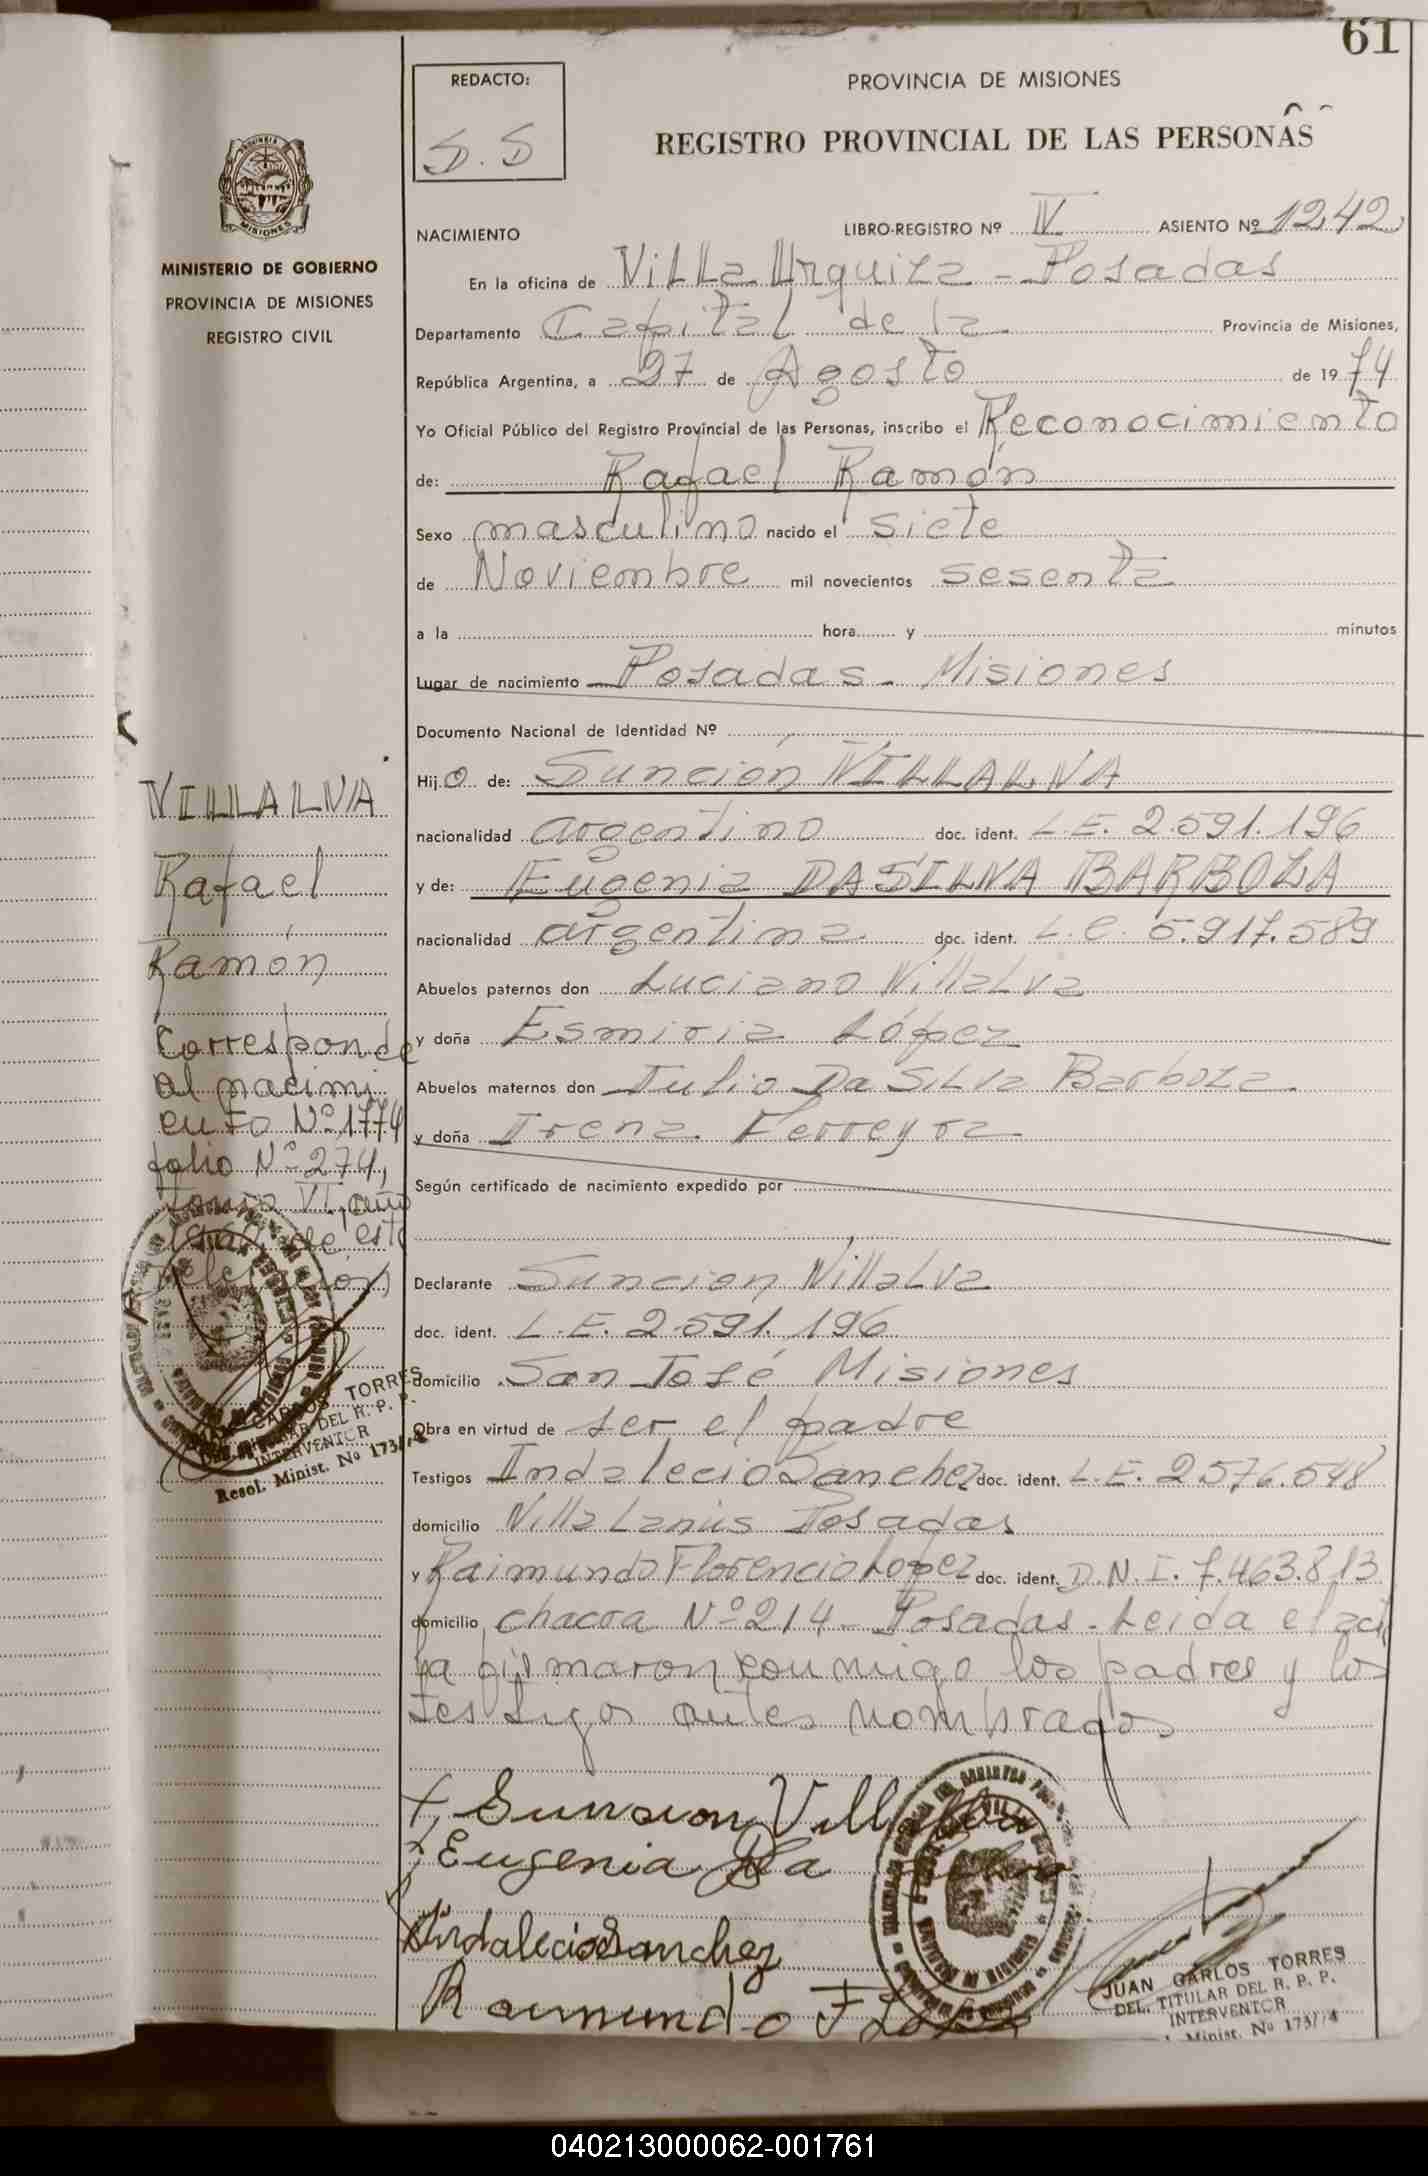 61
REDACTO:
S. S
PROVINCIA DE MISIONES
REGISTRO PROVINCIAL DE LAS PERSONAS
MISIONES
MINISTERIO DE GOBIERNO
PROVINCIA DE MISIONES
REGISTRO CIVIL
NACIMIENTO LIBRO-REGISTRO Nº IV ASIENTO Nº 1242
En la oficina de Villa Urquiza - Posadas
Departamento Capital de la Provincia de Misiones,
República Argentina, a 27 de Agosto de 1974
Yo Oficial Público del Registro Provincial de las Personas, inscribo el Reconocimiento
de: Rafael Ramón
Sexo masculino nacido el siete
de Noviembre mil novecientos sesenta
a la hora y minutos
Lugar de nacimiento Posadas - Misiones
Documento Nacional de Identidad Nº
Hijo de: Sunción VILLALVA
nacionalidad argentino doc. ident. L.E. 2.591.196
y de: Eugenia DA SILVA BARBOZA
nacionalidad argentina doc. ident. L.C. 5.917.589
Abuelos paternos don Luciano Villalva
y doña Esmiria López
Abuelos maternos don Julio Da Silva Barboza
y doña Irena Ferreyra
Según certificado de nacimiento expedido por
Declarante Sunción Villalva
doc. ident. L.E. 2.591.196
domicilio San José Misiones
Obra en virtud de ser el padre
Testigos Indalecio Sanchez doc. ident. L.E. 2.576.548
domicilio Villa Lanús Posadas
y Raimundo Florencio Lopez doc. ident. D.N.I. 7.463.813
domicilio chacra Nº 214 - Posadas - Leida el ac
ta firmaron conmigo los padres y los
testigos antes nombrados
VILLALVA
Rafael
Ramón
Corresponde
al nacimi
ento Nº 1774
folio Nº 274,
Tomo VI, año
de esta
CARLOS TORRES
DEL. TITULAR DEL R. P. P.
INTERVENTOR
Resol. Minist. Nº 173/74
Suncion Villalva
Eugenia Da Silva
Indalecio Sanchez
Raimundo F Lopez
JUAN CARLOS TORRES
DEL. TITULAR DEL R. P. P.
INTERVENTOR
Minist. Nº 173/74
040213000062-001761